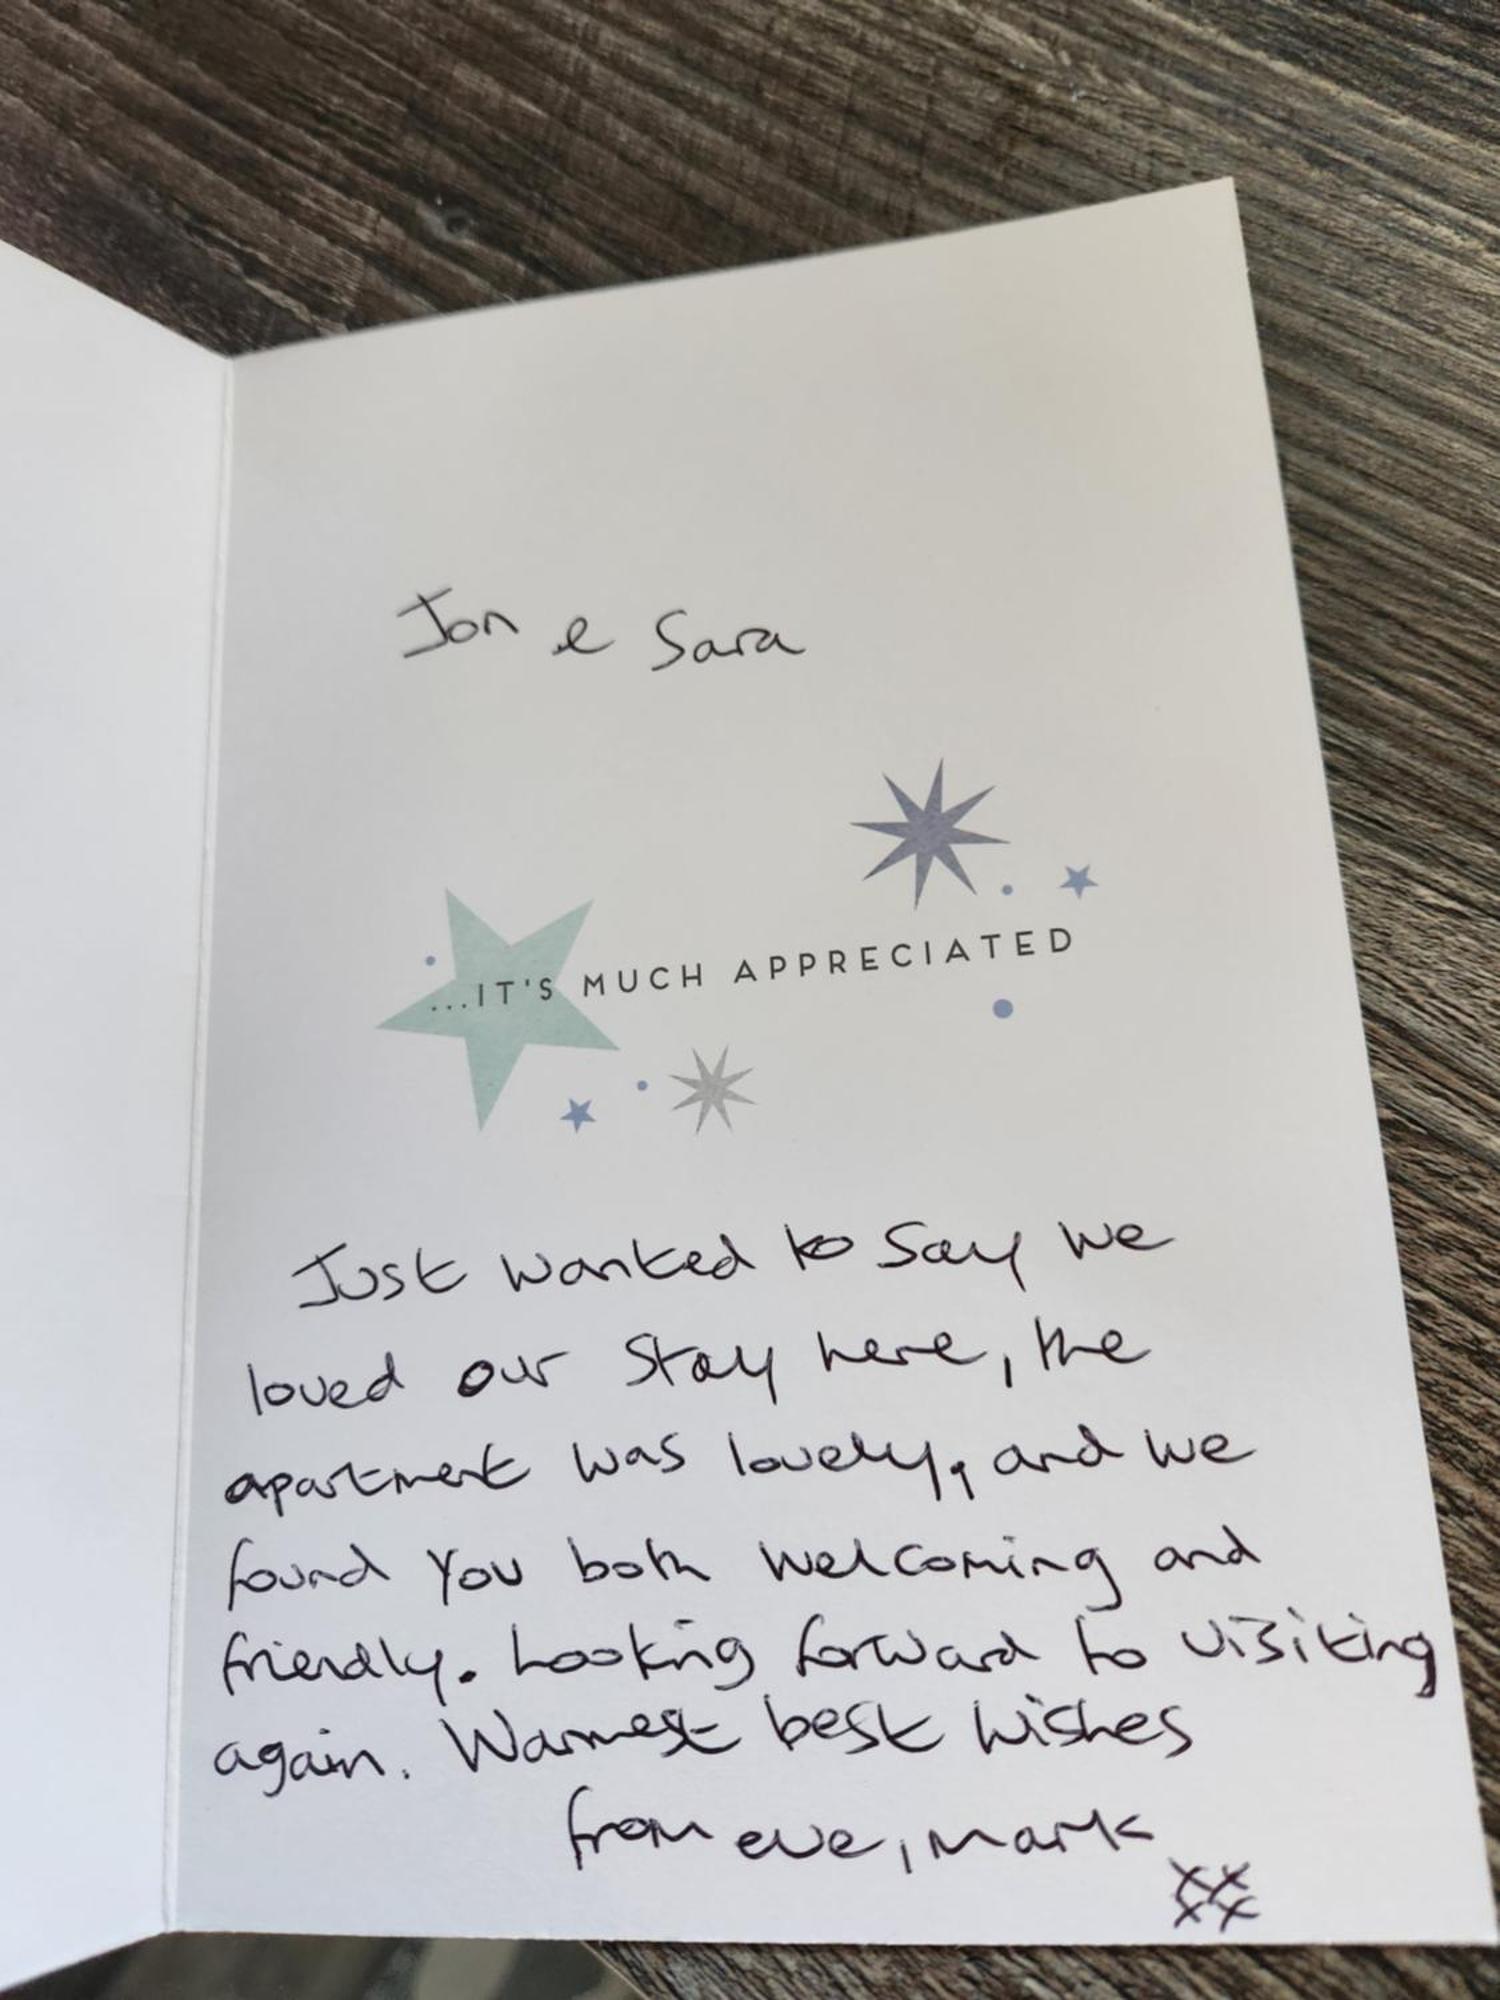 Jon & Sara
...IT'S MUCH APPRECIATED
Just wanted to say we
loved our stay here, the
apartment was lovely, and we
found you both welcoming and
friendly. Looking forward to visiting
again. Warmest best wishes
from eve, mark
xx
xx